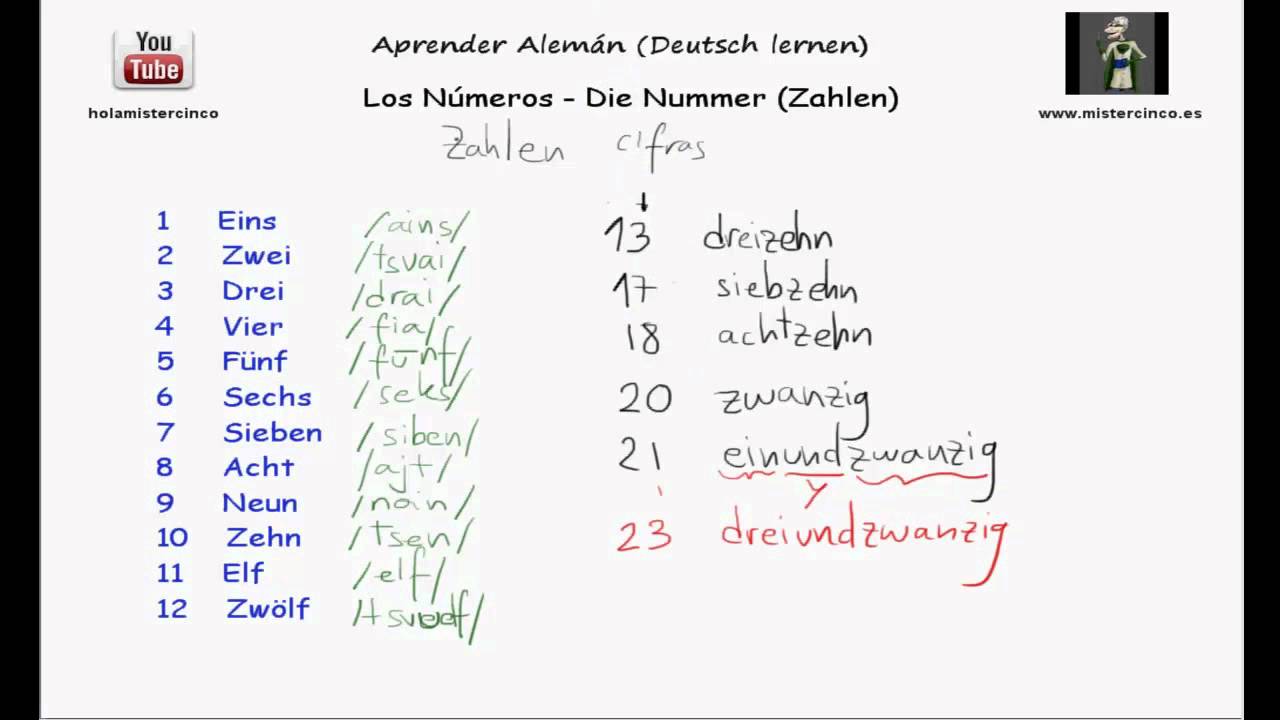 You
Tube
holamistercinco
Aprender Alemán (Deutsch lernen)
Los Números - Die Nummer (Zahlen)
www.mistercinco.es
Zahlen cifras
1 Eins /ains/
2 Zwei /tsvai/
3 Drei /drai/
4 Vier /fia/
5 Fünf /fünf/
6 Sechs /seks/
7 Sieben /siben/
8 Acht /ajt/
9 Neun /noin/
10 Zehn /tsen/
11 Elf /elf/
12 Zwölf
13 dreizehn
17 siebzehn
18 achtzehn
20 zwanzig
21 einundzwanzig
y
23 dreiundzwanzig